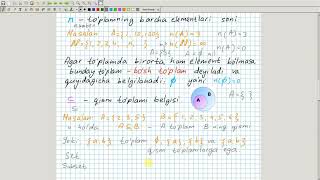 n - to'plamning barcha elementlari soni
Masalan A={1, 12, 100} n(A)=3
N={1, 2, 3, ...} n(N)=∞
Agar to'plamda birorta ham element bo'lmasa
bunday to'plam - bo'sh to'plam deyiladi va
quyidagicha belgilanadi: ∅ yani n(∅)=0
⊆ - qism to'plami belgisi
A B
Masalan: A={2, 3, 5} B={1, 2, 3, 4, 5, 6}
u holda A⊆B - A to'plam B ning qismi
Yoki {a, b} to'plam ∅, {a}, {b} va {a, b}
qism to'plamlarga ega.
Set
Subset